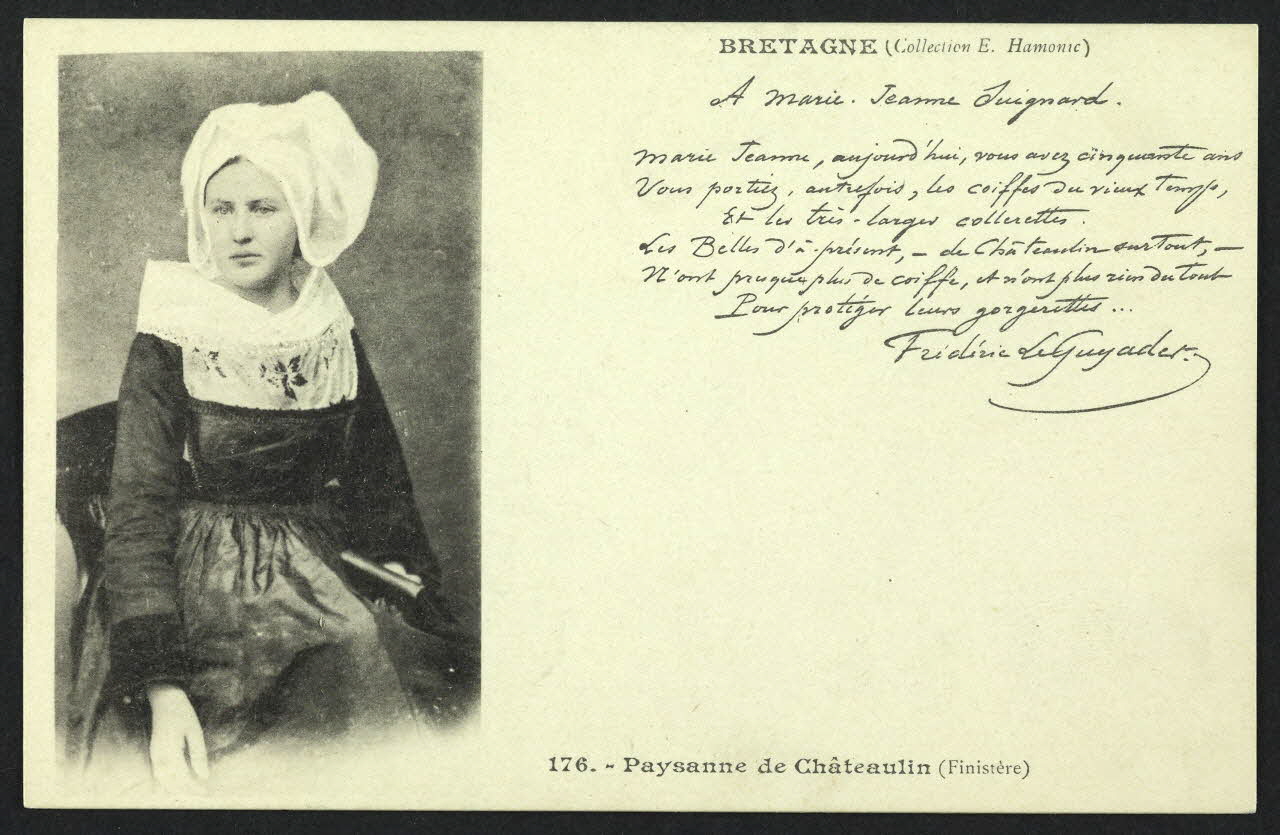 BRETAGNE (Collection E. Hamonic)
A Marie-Jeanne Suignard.
Marie Jeanne, aujourd'hui, vous avez cinquante ans
Vous portiez, autrefois, les coiffes du vieux temps,
Et les très-larges collerettes.
Les Belles d'à-présent, – de Châteaulin surtout, –
N'ont presque plus de coiffe, et n'ont plus rien du tout
Pour protéger leurs gorgerettes...
Frédéric Le Guyader.
176. - Paysanne de Châteaulin (Finistère)